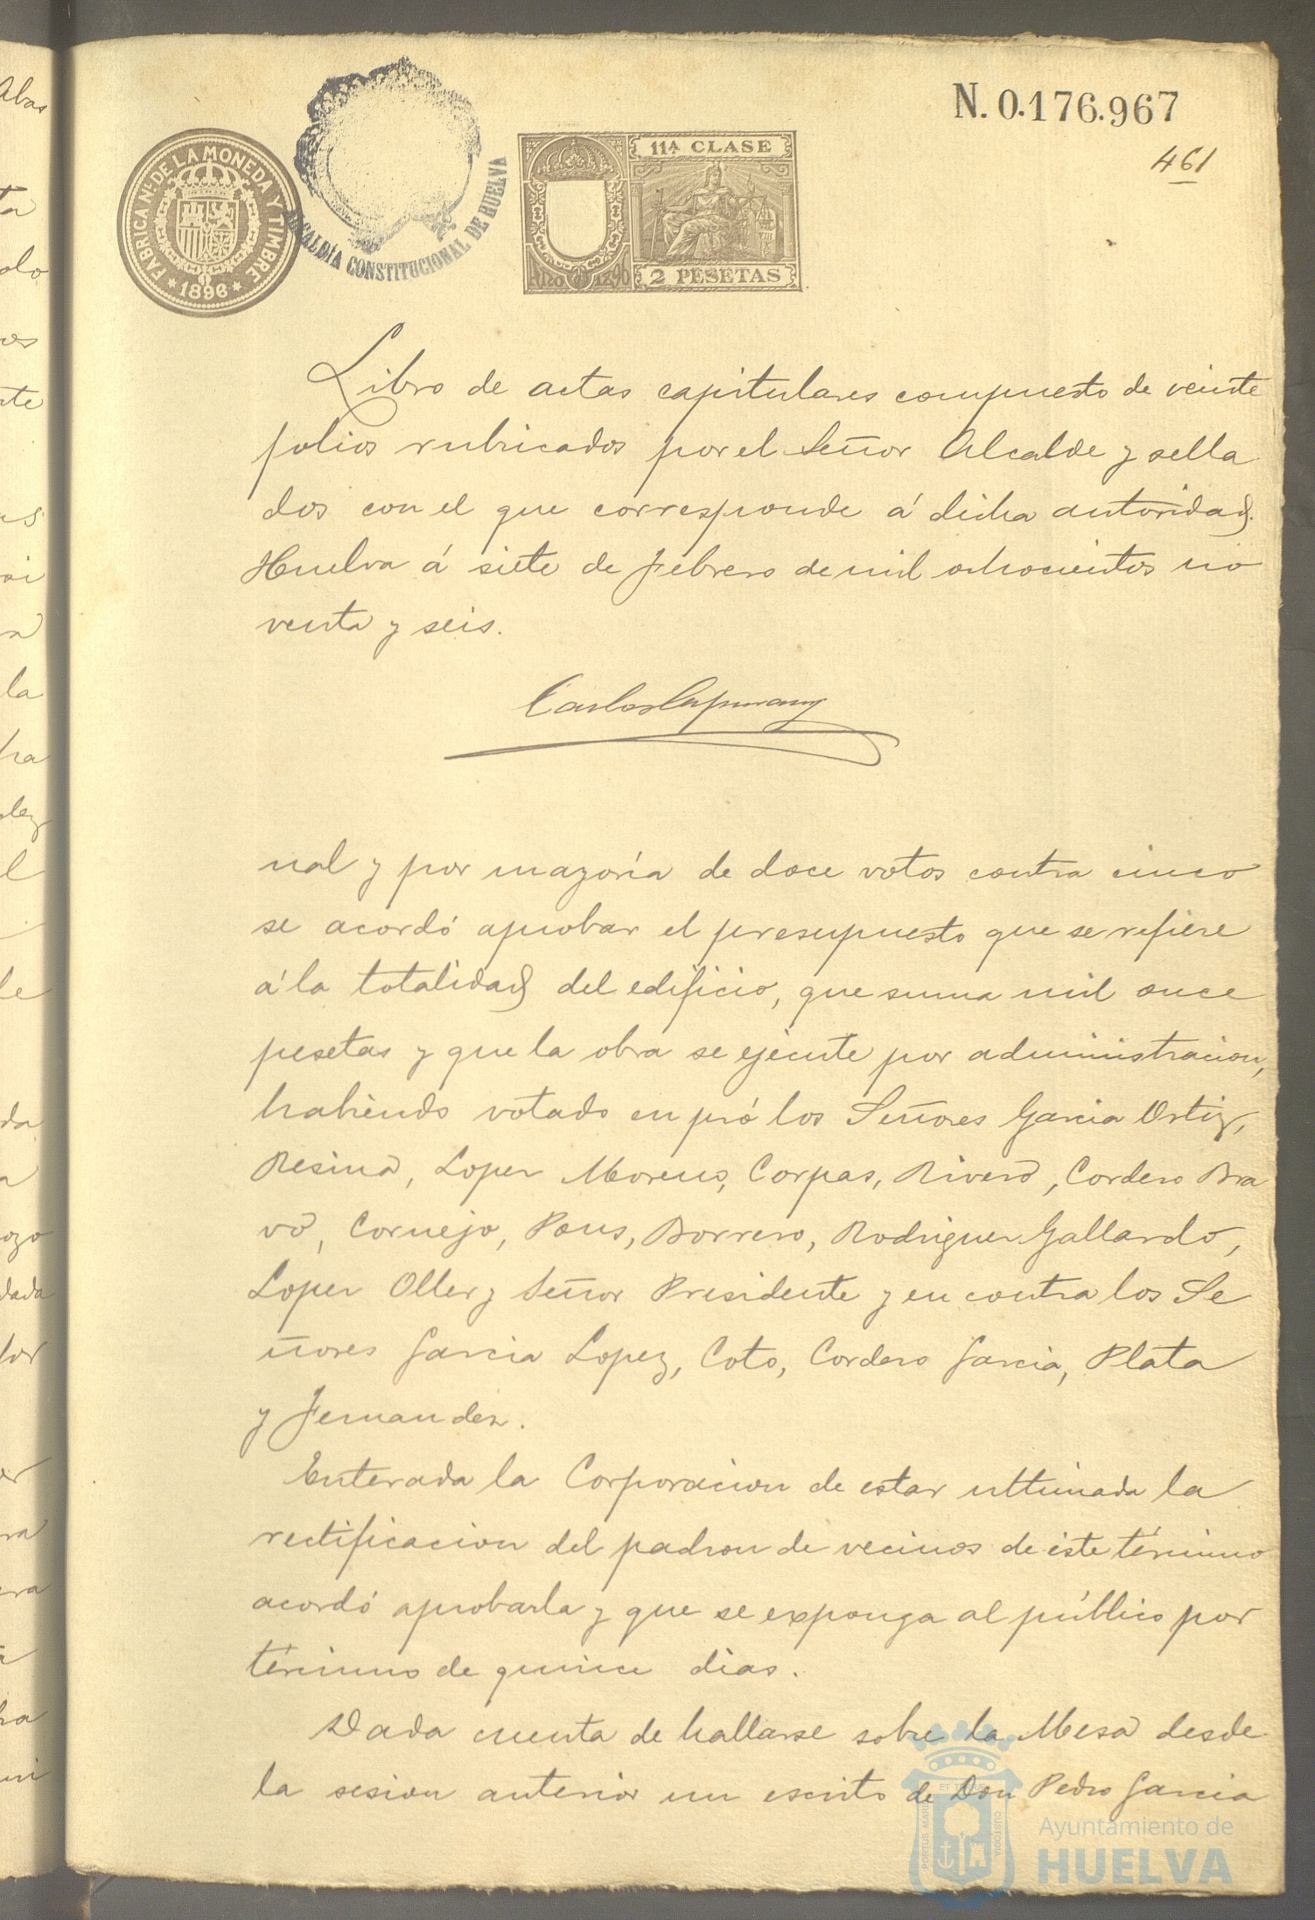 N. 0.176.967
461
FABRICA NL. DE LA MONEDA Y TIMBRE
* 1896 *
ALCALDÍA CONSTITUCIONAL DE HUELVA
11ª CLASE
2 PESETAS
Libro de actas capitulares compuesto de veinte
folios rubricados por el Señor Alcalde y sella
dos con el que corresponde á dicha autoridad.
Huelva á siete de Febrero de mil ochocientos no
venta y seis.
Carlos
nal y por mayoría de doce votos contra cinco
se acordó aprobar el presupuesto que se refiere
á la totalidad del edificio, que suma mil once
pesetas y que la obra se ejecute por administracion,
habiendo votado en pró los Señores Garcia Ortiz,
Resina, Lopez Moreno, Corpas, Rivero, Cordero Bra
vo, Cornejo, Pons, Borrero, Rodriguez Gallardo,
Lopez Oller y Señor Presidente y en contra los Se
ñores Garcia Lopez, Coto, Cordero Garcia, Plata
y Fernandez.
Enterada la Corporacion de estar ultimada la
rectificacion del padron de vecinos de este término
acordó aprobarla y que se exponga al público por
término de quince dias.
Dada cuenta de hallarse sobre la Mesa desde
la sesion anterior un escrito de Don Pedro Garcia
Ayuntamiento de
HUELVA